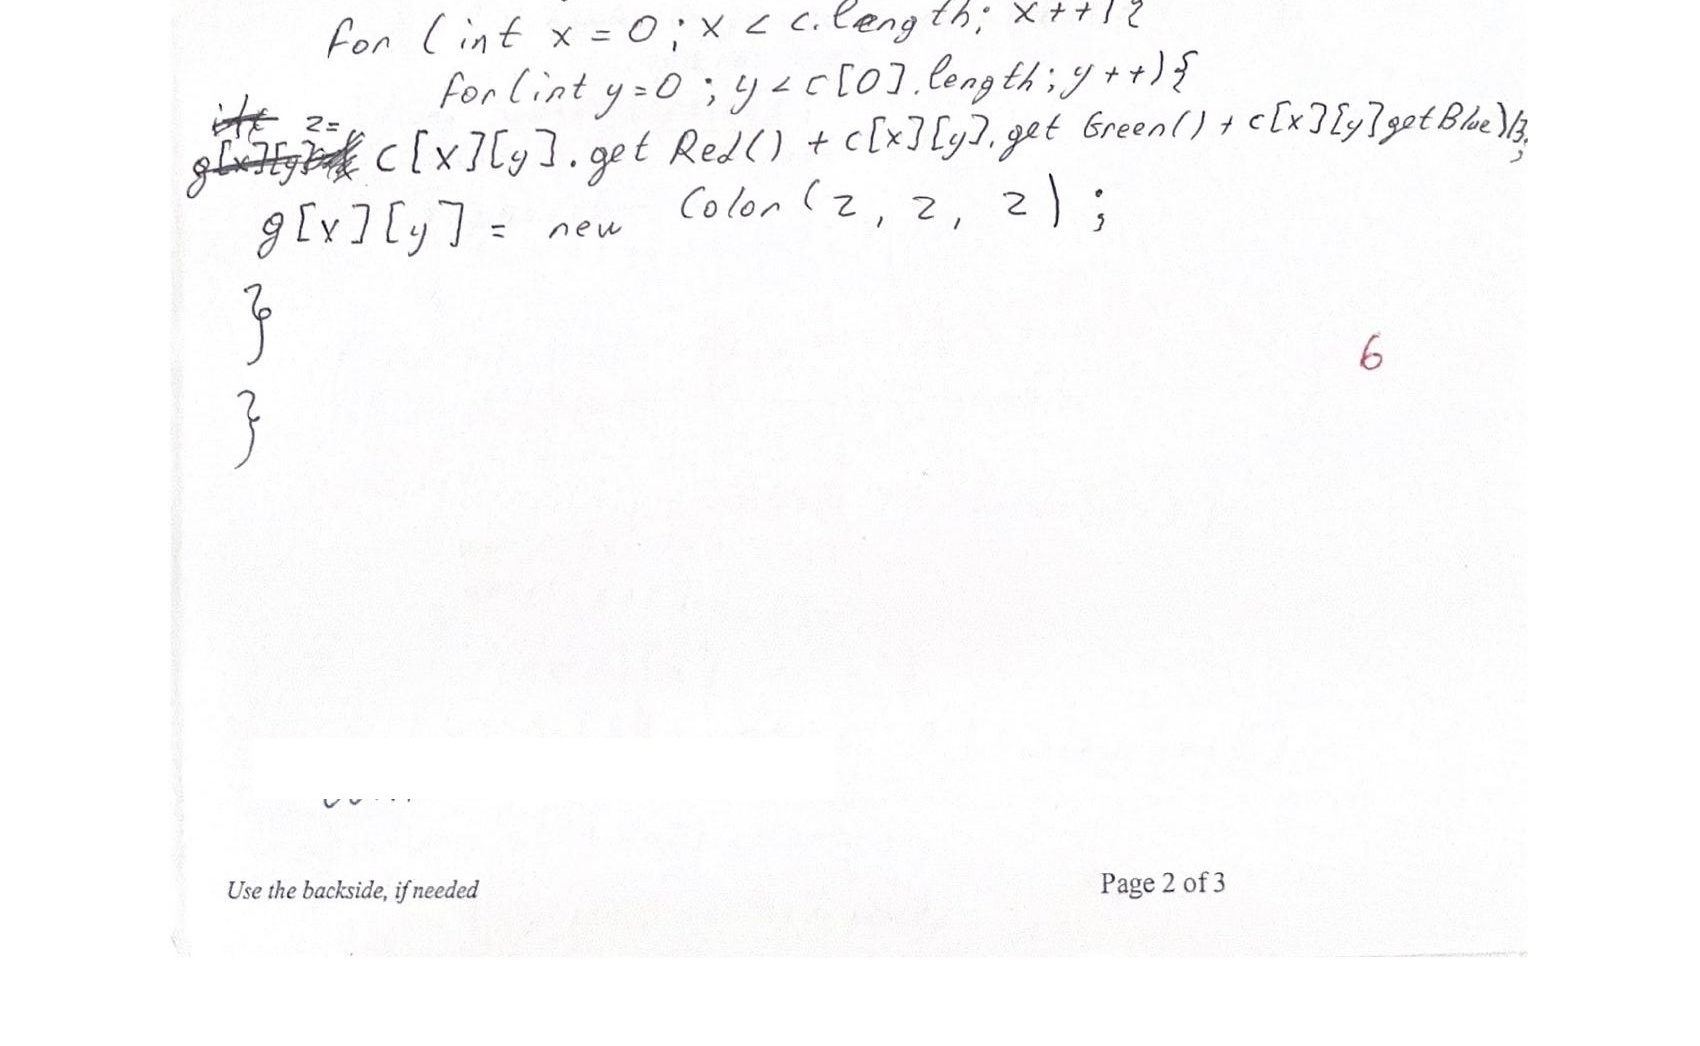 for (int x = 0; x < c.length; x++){
for(int y=0; y<c[0].length; y++){
z=
c[x][y].get Red() + c[x][y].get Green() + c[x][y]getBlue)/3;
g[x][y] = new Color(z, z, z);
}
6
}
Use the backside, if needed Page 2 of 3